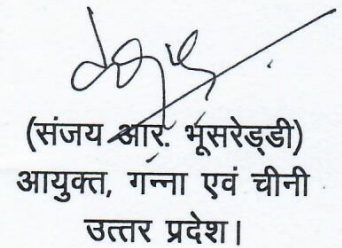 (संजय आर. भूसरेड्डी)
आयुक्त, गन्ना एवं चीनी
उत्तर प्रदेश।